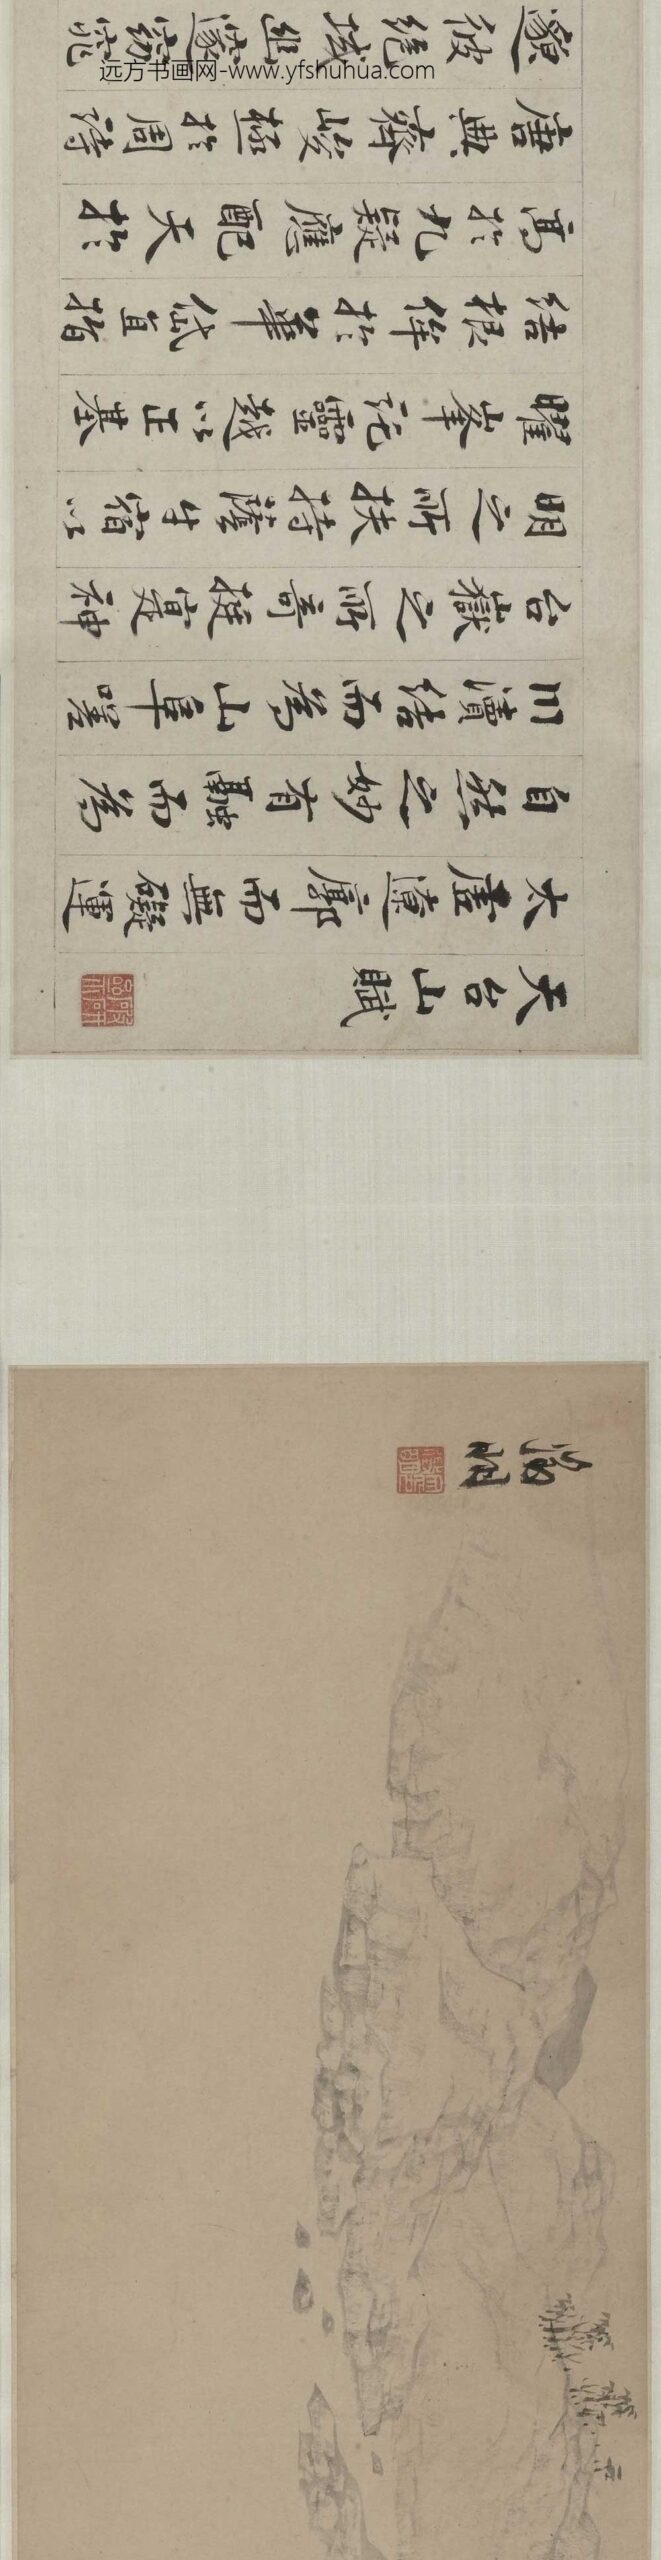 远方书画网-www.yfshuhua.com
天台山賦
太虛遼廓而無礙運
自然之妙有融而為
川瀆結而為山阜嗟
台嶽之所奇挺寔神
明之所扶持蔭牛宿以
曜峯託靈越以正基
結根於華岱直指
高於九疑應配天於
唐典齊峻極於周詩
邈彼絕域幽邃窈窕